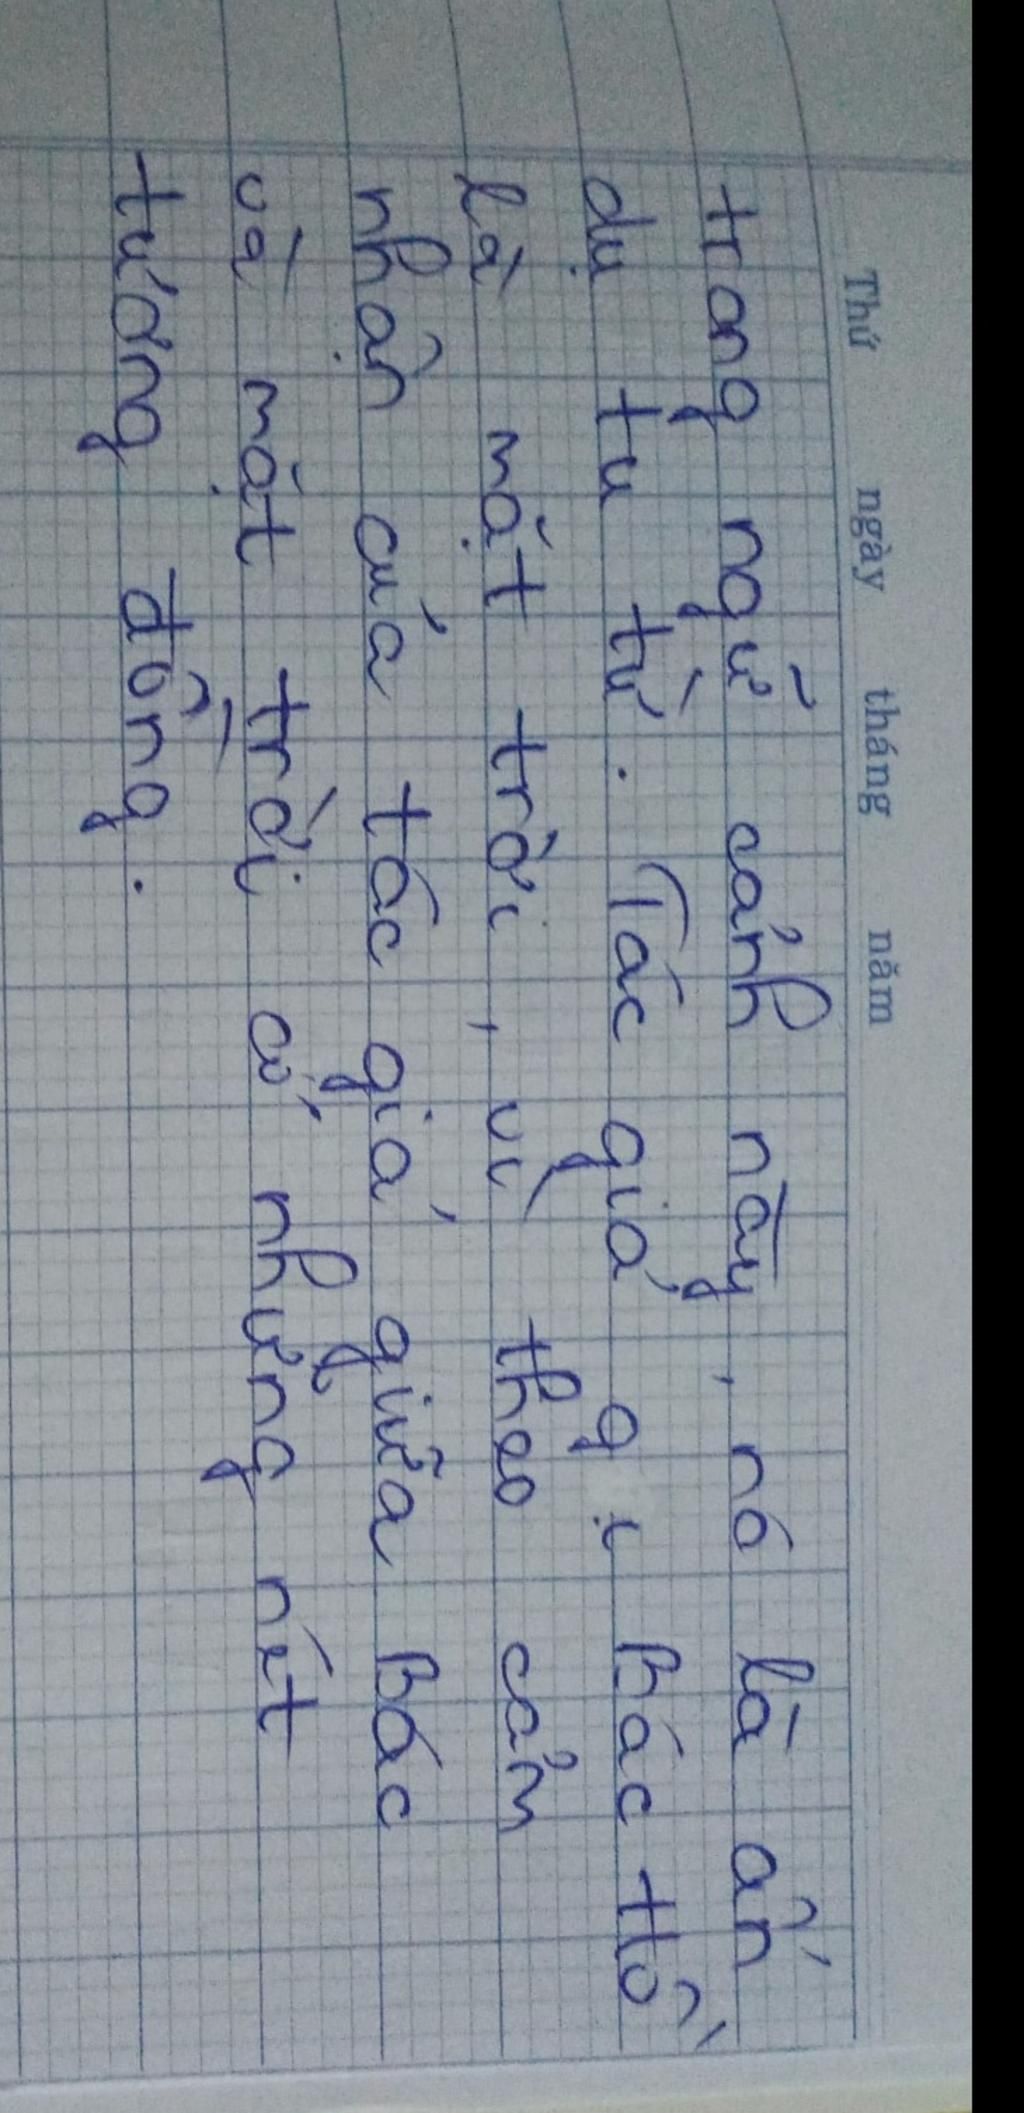 Thứ ngày tháng năm
trong ngữ cảnh này, nó là ẩn
dụ tu từ. Tác giả g i Bác Hồ
là mặt trời, vì theo cảm
nhận của tác giả giữa Bác
và mặt trời có những nét
tương đồng.